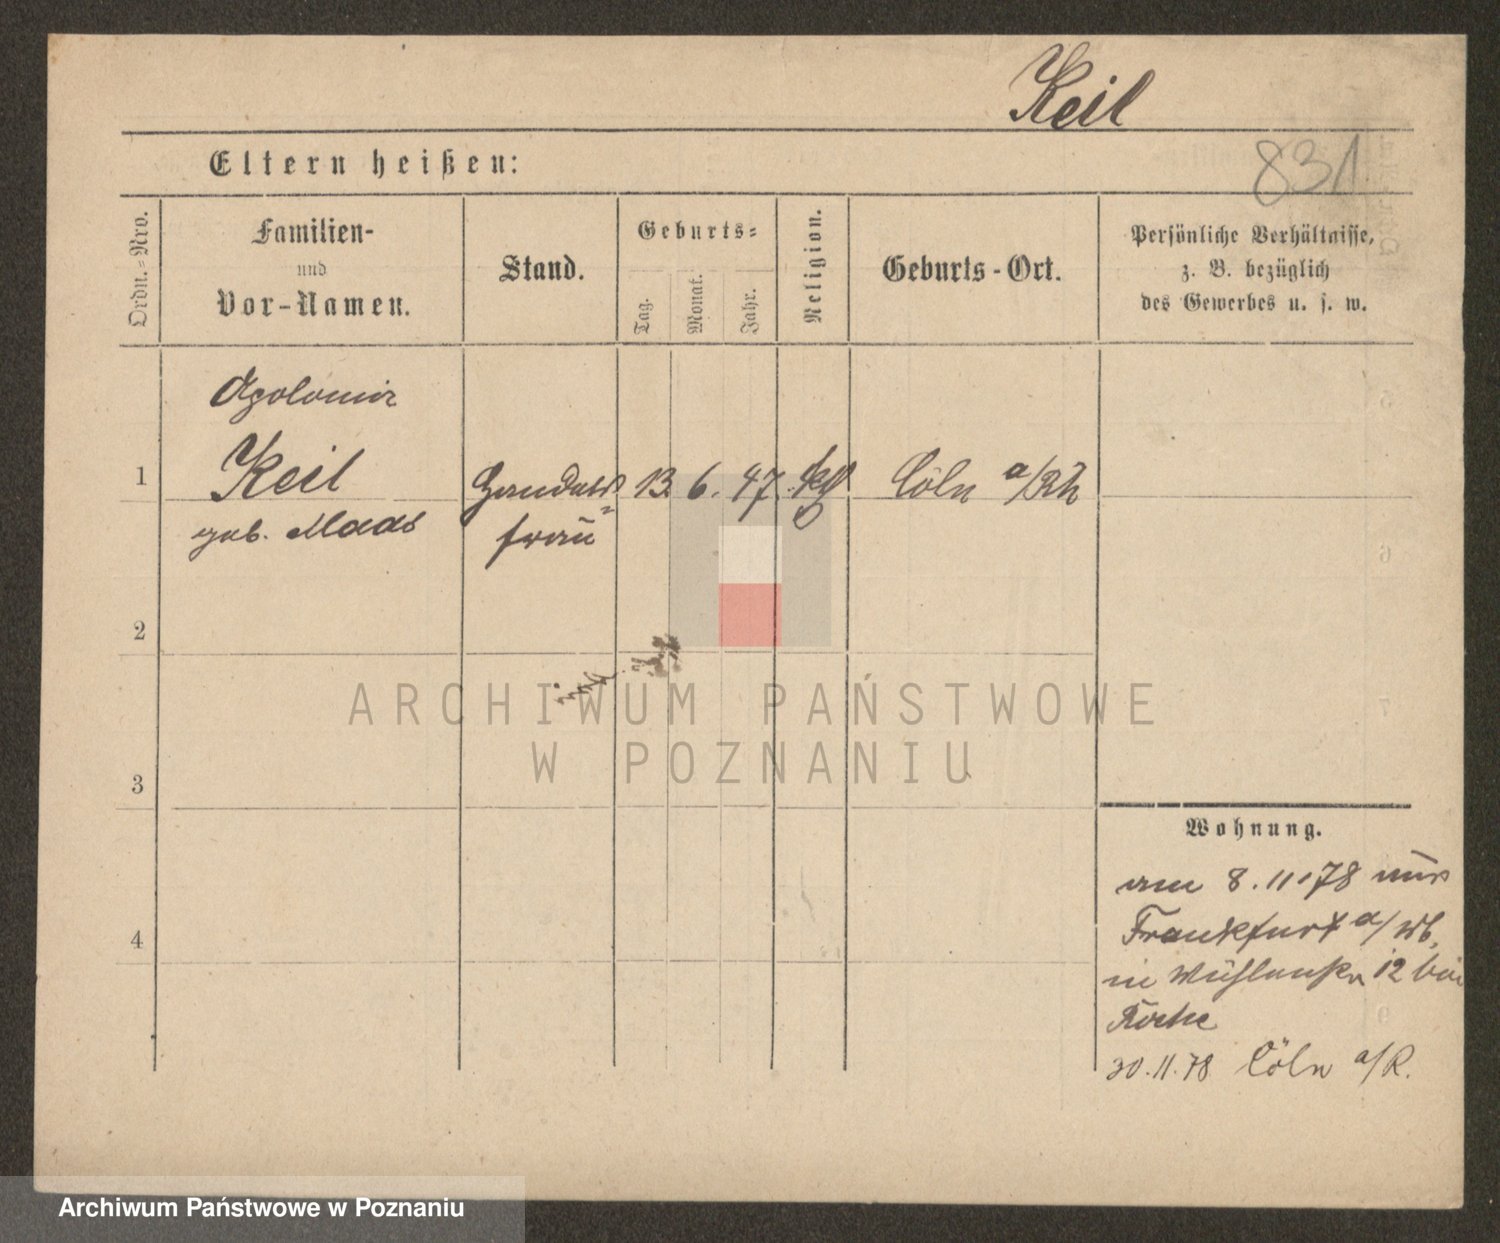 Keil
831
Eltern heißen:
Ordn.-Nro.
Familien-
und
Vor-Namen.
Stand.
Geburts-
Tag.
Monat.
Jahr.
Religion.
Geburts-Ort.
Persönliche Verhältnisse,
z. B. bezüglich
des Gewerbes u. s. w.
Apolonia
1 Keil Handels= 13. 6. 47. kath Cöln a/Rh
geb. Maas frau
2
ARCHIWUM PAŃSTWOWE
W POZNANIU
3
Wohnung.
am 8.11.78 aus
Frankfurt a/
4
in 12 bei
20.11.78 Cöln a/R.
Archiwum Państwowe w Poznaniu